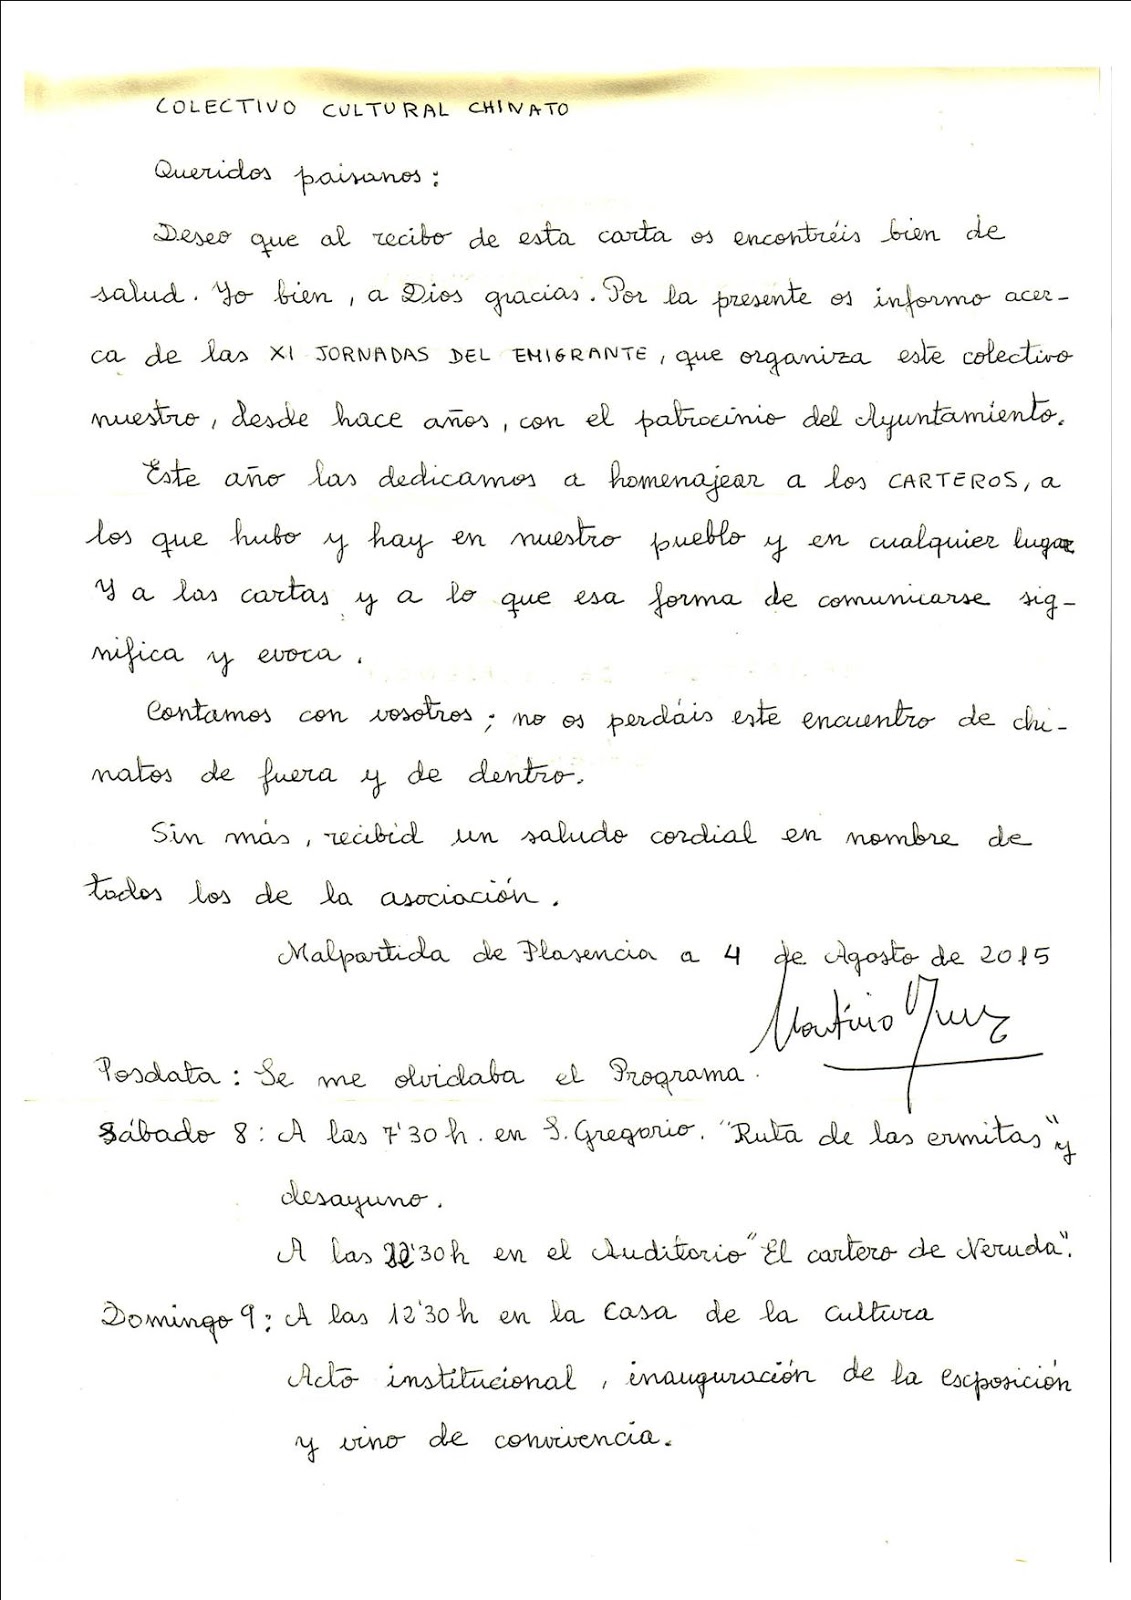 COLECTIVO CULTURAL CHINATO
Queridos paisanos:
Deseo que al recibo de esta carta os encontréis bien de
salud. Yo bien, a Dios gracias. Por la presente os informo acer-
ca de las XI JORNADAS DEL EMIGRANTE, que organiza este colectivo
nuestro, desde hace años, con el patrocinio del Ayuntamiento.
Este año las dedicamos a homenajear a los CARTEROS, a
los que hubo y hay en nuestro pueblo y en cualquier lugar
Y a las cartas y a lo que esa forma de comunicarse sig-
nifica y evoca.
Contamos con vosotros; no os perdáis este encuentro de chi-
natos de fuera y de dentro.
Sin más, recibid un saludo cordial en nombre de
todos los de la asociación.
Malpartida de Plasencia a 4 de Agosto de 2015
Posdata: Se me olvidaba el Programa.
Sábado 8: A las 7'30 h. en S. Gregorio. "Ruta de las ermitas" y
desayuno.
A las 30 h en el Auditorio "El cartero de Neruda".
Domingo 9: A las 12'30 h en la Casa de la Cultura
Acto institucional, inauguración de la exposición
y vino de convivencia.